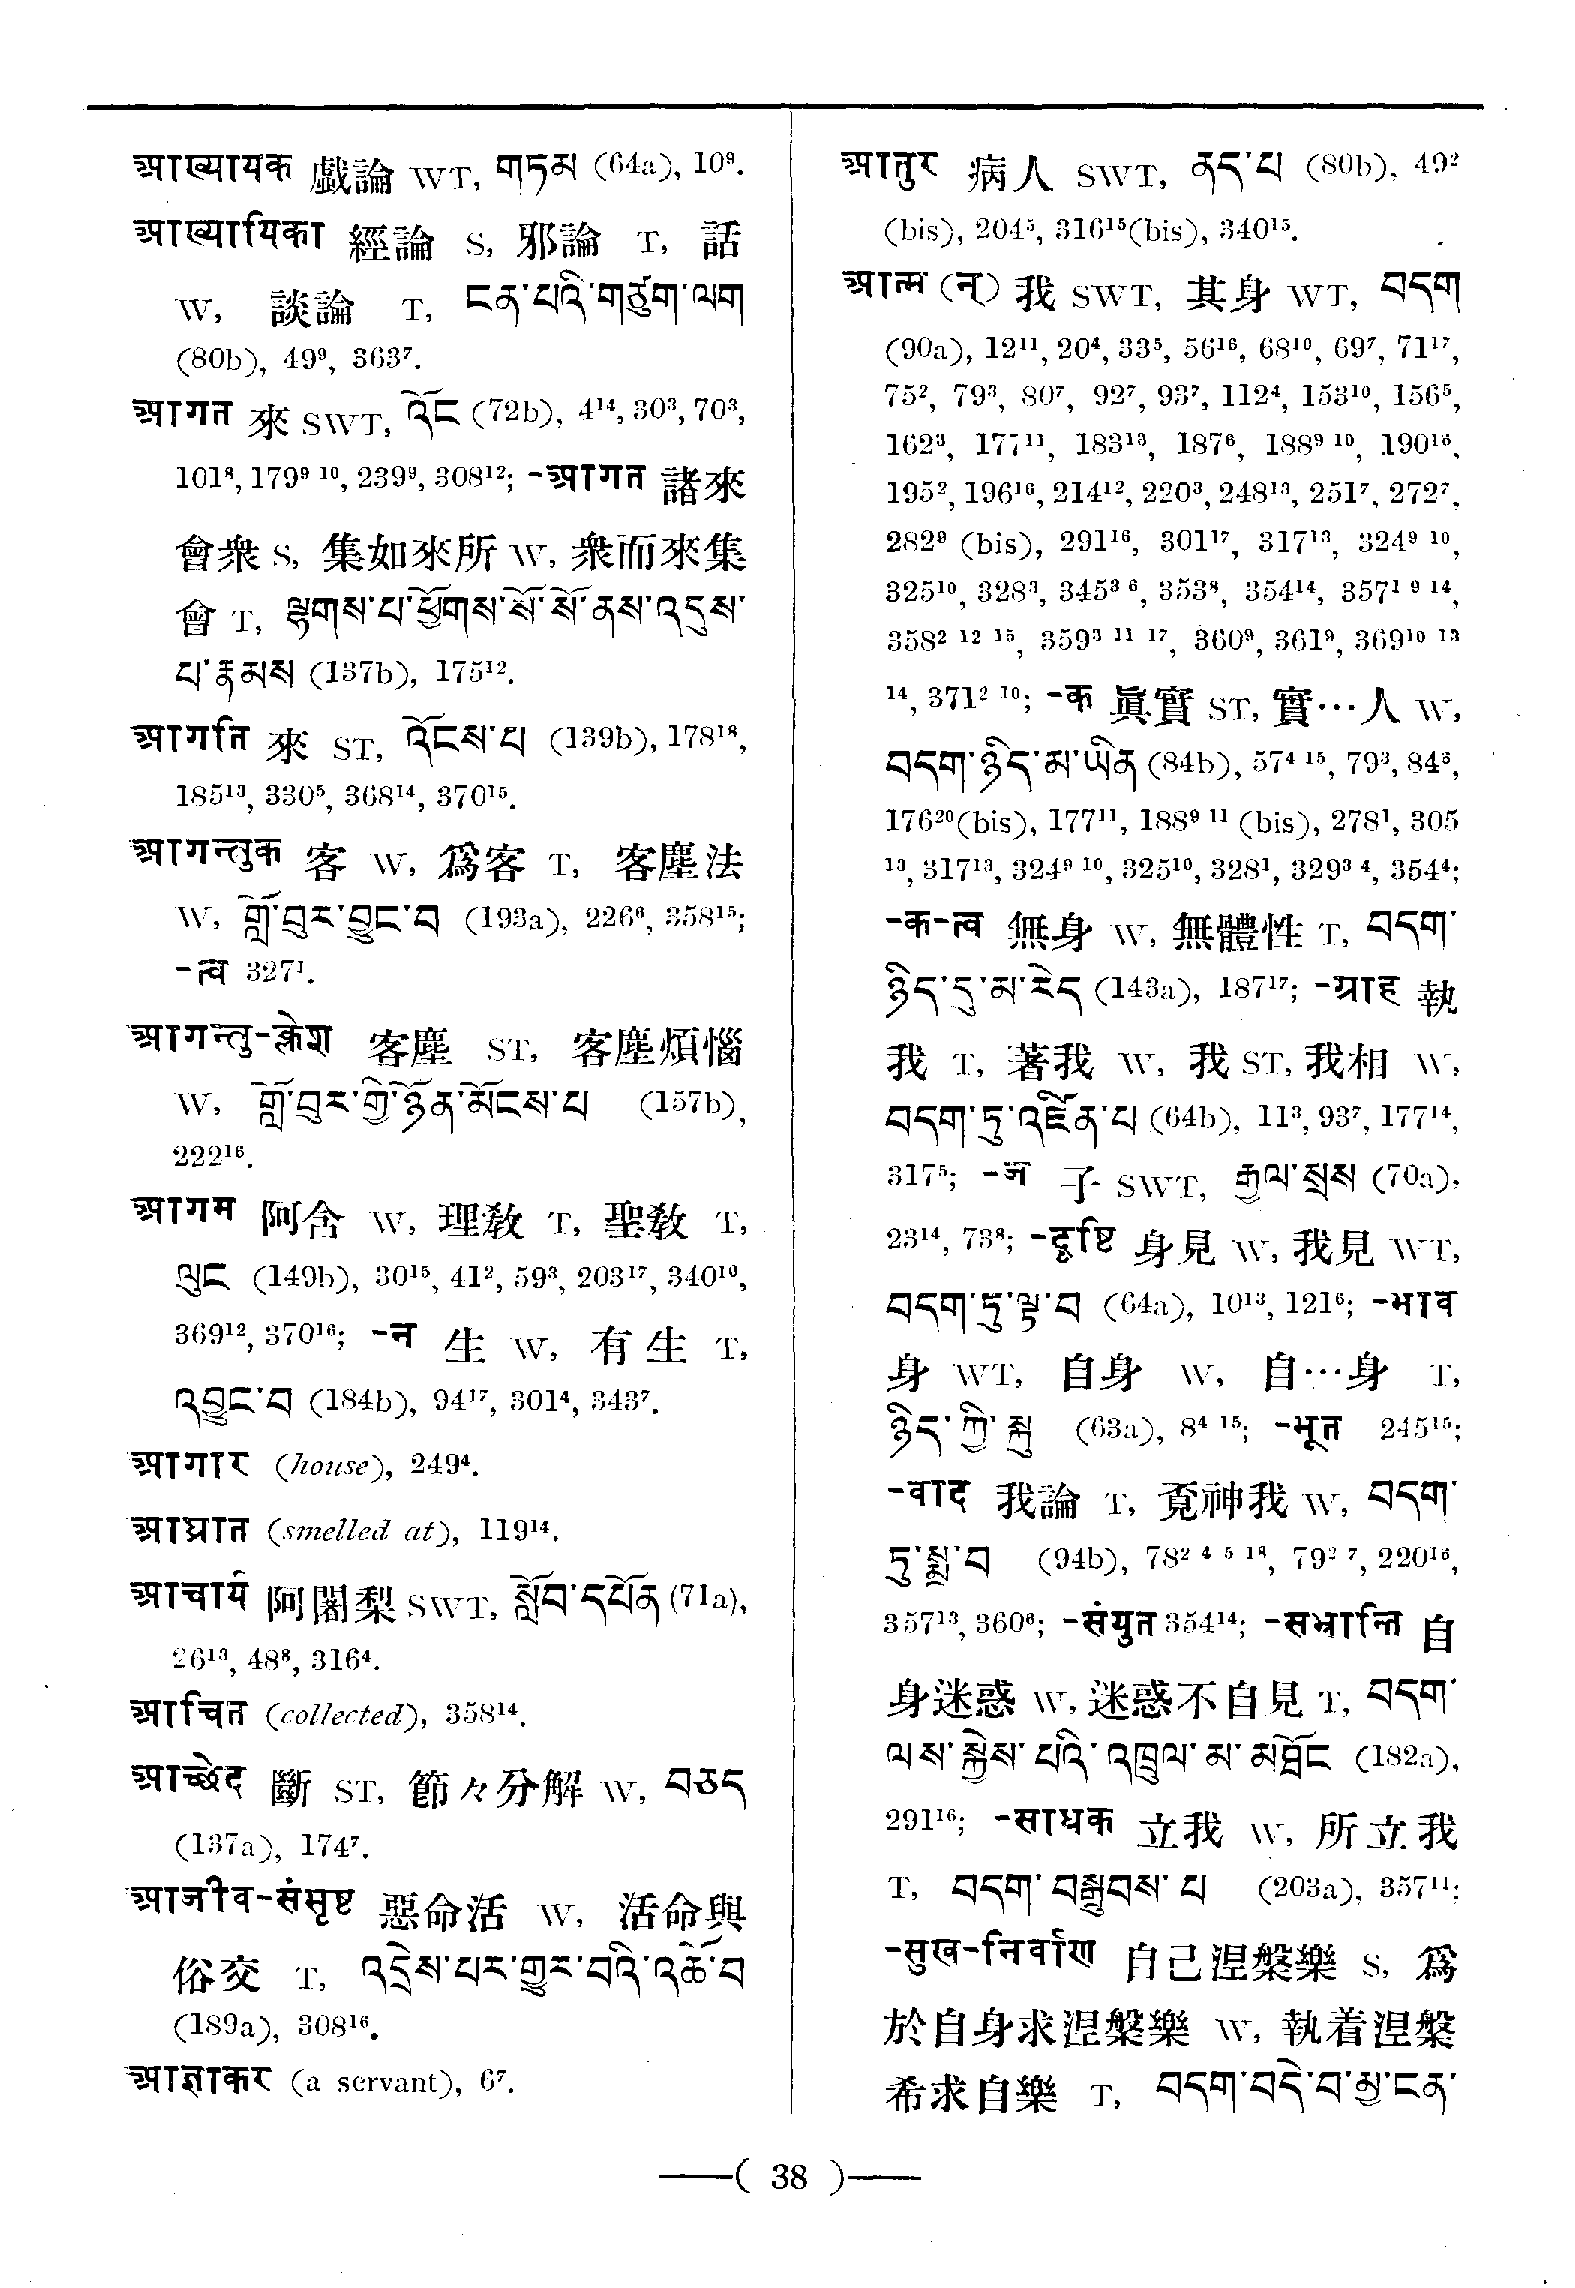 आख्यायक 戲論 WT, གཏམ (64a), 10⁹.
आख्यायिका 經論 S, 邪論 T, 話
W, 談論 T, ངན་པའི་གཙུག་ལག
(80b), 49⁹, 363⁷.
आगत 來 SWT, འོང (72b), 4¹⁴, 30³, 70³,
101⁸, 179⁹ ¹⁰, 239⁹, 308¹²; -आगत 諸來
會衆 S, 集如來所 W, 衆而來集
會 T, ལྷགས་པ་ཕྱོགས་སོ་སོ་ནས་འདུས་
པ་རྣམས (137b), 175¹².
आगति 來 ST, འོངས་པ (139b), 178¹⁸,
185¹³, 330⁵, 368¹⁴, 370¹⁵.
आगन्तुक 客 W, 爲客 T, 客塵法
W, གློ་བུར་བྱུང་བ (193a), 226⁶, 358¹⁵;
-त्व 327¹.
आगन्तु-क्लेश 客塵 ST, 客塵煩惱
W, གློ་བུར་གྱི་ཉོན་མོངས་པ (157b),
222¹⁶.
आगम 阿含 W, 理敎 T, 聖敎 T,
ལུང (149b), 30¹⁵, 41², 59³, 203¹⁷, 340¹⁰,
369¹², 370¹⁶; -न 生 W, 有生 T,
འབྱུང་བ (184b), 94¹⁷, 301⁴, 343⁷.
आगार (house), 249⁴.
आघ्रात (smelled at), 119¹⁴.
आचार्य 阿闍梨 SWT, སློབ་དཔོན (71a),
26¹³, 48⁸, 316⁴.
आचित (collected), 358¹⁴.
आच्छेद 斷 ST, 節々分解 W, བཅད
(137a), 174⁷.
आजीव-संसृष्ट 惡命活 W, 活命與
俗交 T, འདྲེས་པར་གྱུར་བའི་འཚོ་བ
(189a), 308¹⁶.
आज्ञाकर (a servant), 6⁷.
आतुर 病人 SWT, ནད་པ (80b), 49²
(bis), 204⁵, 316¹⁵(bis), 340¹⁵.
आत्म (न्) 我 SWT, 其身 WT, བདག
(90a), 12¹¹, 20⁴, 33⁵, 56¹⁶, 68¹⁰, 69⁷, 71¹⁷,
75², 79³, 80⁷, 92⁷, 93⁷, 112⁴, 153¹⁰, 156⁵,
162³, 177¹¹, 183¹³, 187⁶, 188⁹ ¹⁰, 190¹⁶,
195², 196¹⁶, 214¹², 220³, 248¹³, 251⁷, 272⁷,
282⁹ (bis), 291¹⁶, 301¹⁷, 317¹³, 324⁹ ¹⁰,
325¹⁰, 328³, 345³ ⁶, 353⁸, 354¹⁴, 357¹ ⁹ ¹⁴,
358² ¹² ¹⁵, 359³ ¹¹ ¹⁷, 360⁹, 361⁹, 369¹⁰ ¹³
¹⁴, 371² ¹⁰; -क 眞實 ST, 實…人 W,
བདག་ཉིད་མ་ཡིན (84b), 57⁴ ¹⁵, 79³, 84⁶,
176²⁰(bis), 177¹¹, 188⁹ ¹¹ (bis), 278¹, 305
¹³, 317¹³, 324⁹ ¹⁰, 325¹⁰, 328¹, 329³ ⁴, 354⁴;
-क-त्व 無身 W, 無體性 T, བདག་
ཉིད་དུ་མ་རེད (143a), 187¹⁷; -ग्राह 執
我 T, 著我 W, 我 ST, 我相 W,
བདག་ཏུ་འཛིན་པ (64b), 11³, 93⁷, 177¹⁴,
317⁵; -ज 子 SWT, རྒྱལ་སྲས (70a),
23¹⁴, 73⁸; -दृष्टि 身見 W, 我見 WT,
བདག་ཏུ་ལྟ་བ (64a), 10¹³, 121⁶; -भाव
身 WT, 自身 W, 自…身 T,
ཉིད་ཀྱི་སྐུ (63a), 8⁴ ¹⁵; -भूत 245¹⁵;
-वाद 我論 T, 覔神我 W, བདག་
ཏུ་སྨྲ་བ (94b), 78² ⁴ ⁵ ¹⁸, 79² ⁷, 220¹⁶,
357¹³, 360⁶; -संयुत 354¹⁴; -सभ्रान्ति 自
身迷惑 W, 迷惑不自見 T, བདག་
ལས་སྐྱེས་པའི་འཁྲུལ་མ་མཐོང (182a),
291¹⁶; -साधक 立我 W, 所立我
T, བདག་བསྒྲུབས་པ (203a), 357¹¹;
-सुख-निर्वाण 自己涅槃樂 S, 爲
於自身求涅槃樂 W, 執着涅槃
希求自樂 T, བདག་བདེ་བ་མྱ་ངན་
( 38 )